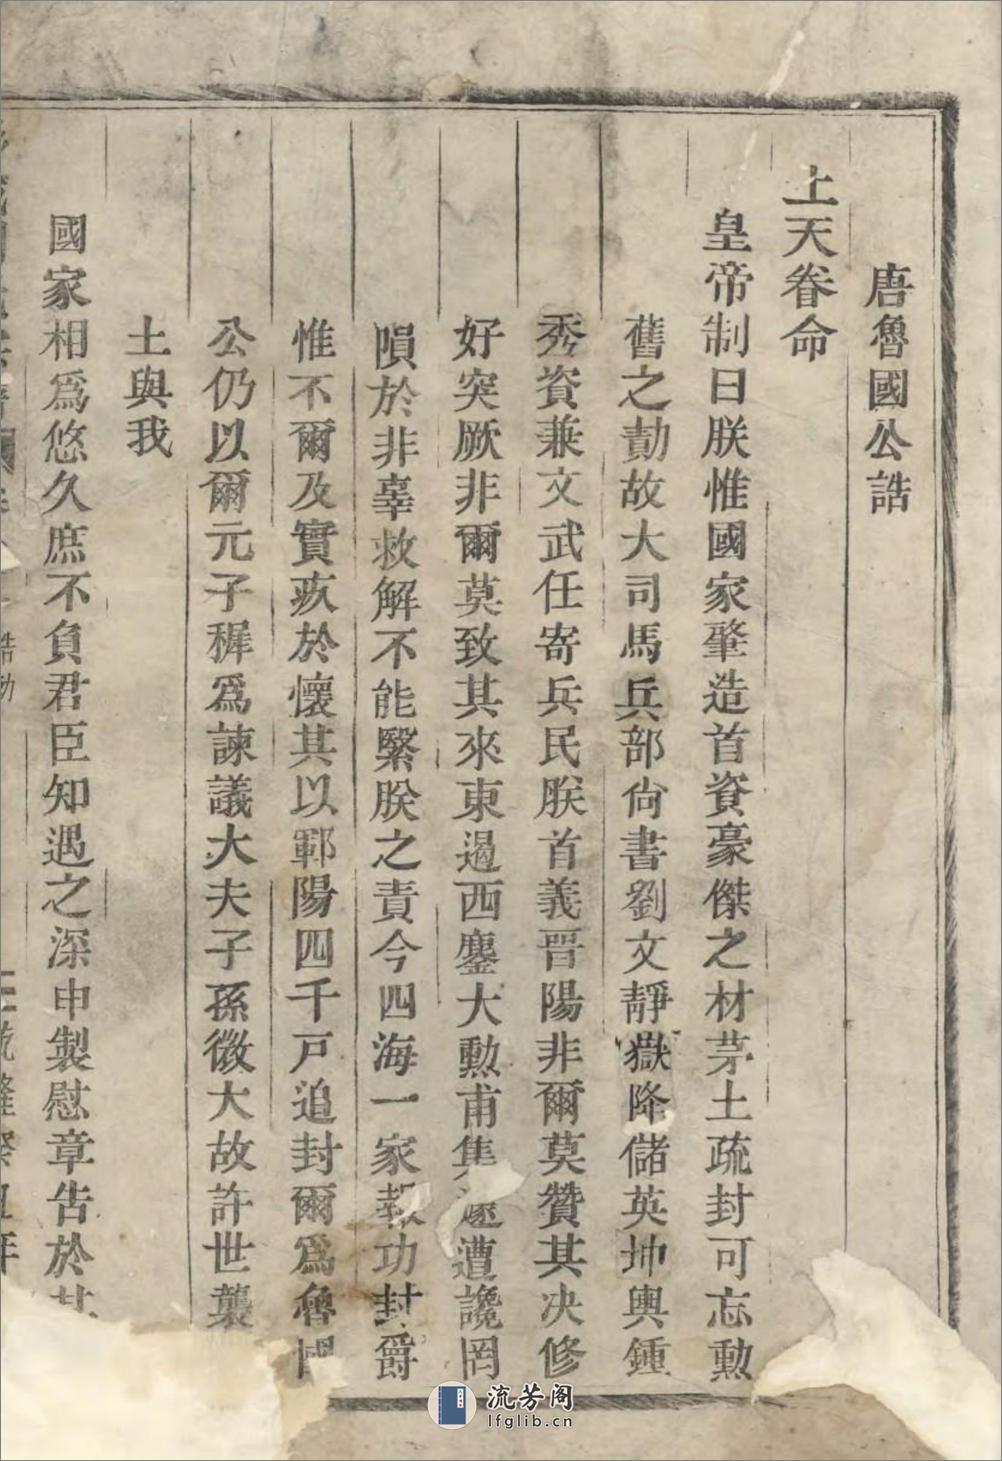 唐魯國公誥
上天眷命
皇帝制曰朕惟國家肇造首資豪傑之材茅土疏封可忘勳
舊之勣故大司馬兵部尙書劉文靜嶽降儲英坤輿鍾
秀資兼文武任寄兵民朕首義晋陽非爾莫贊其决修
好突厥非爾莫致其來東過西鏖大勲甫集遽遭讒罔
隕於非辜救解不能緊朕之責今四海一家報功封爵
惟不爾及實疚於懷其以鄆陽四千戸追封爾爲魯國
公仍以爾元子穉爲諫議大夫子孫微大故許世襲
土與我
國家相爲悠久庶不負君臣知遇之深申製慰章告於
誥勅
乾隆癸丑年
流芳阁
lfglib.cn